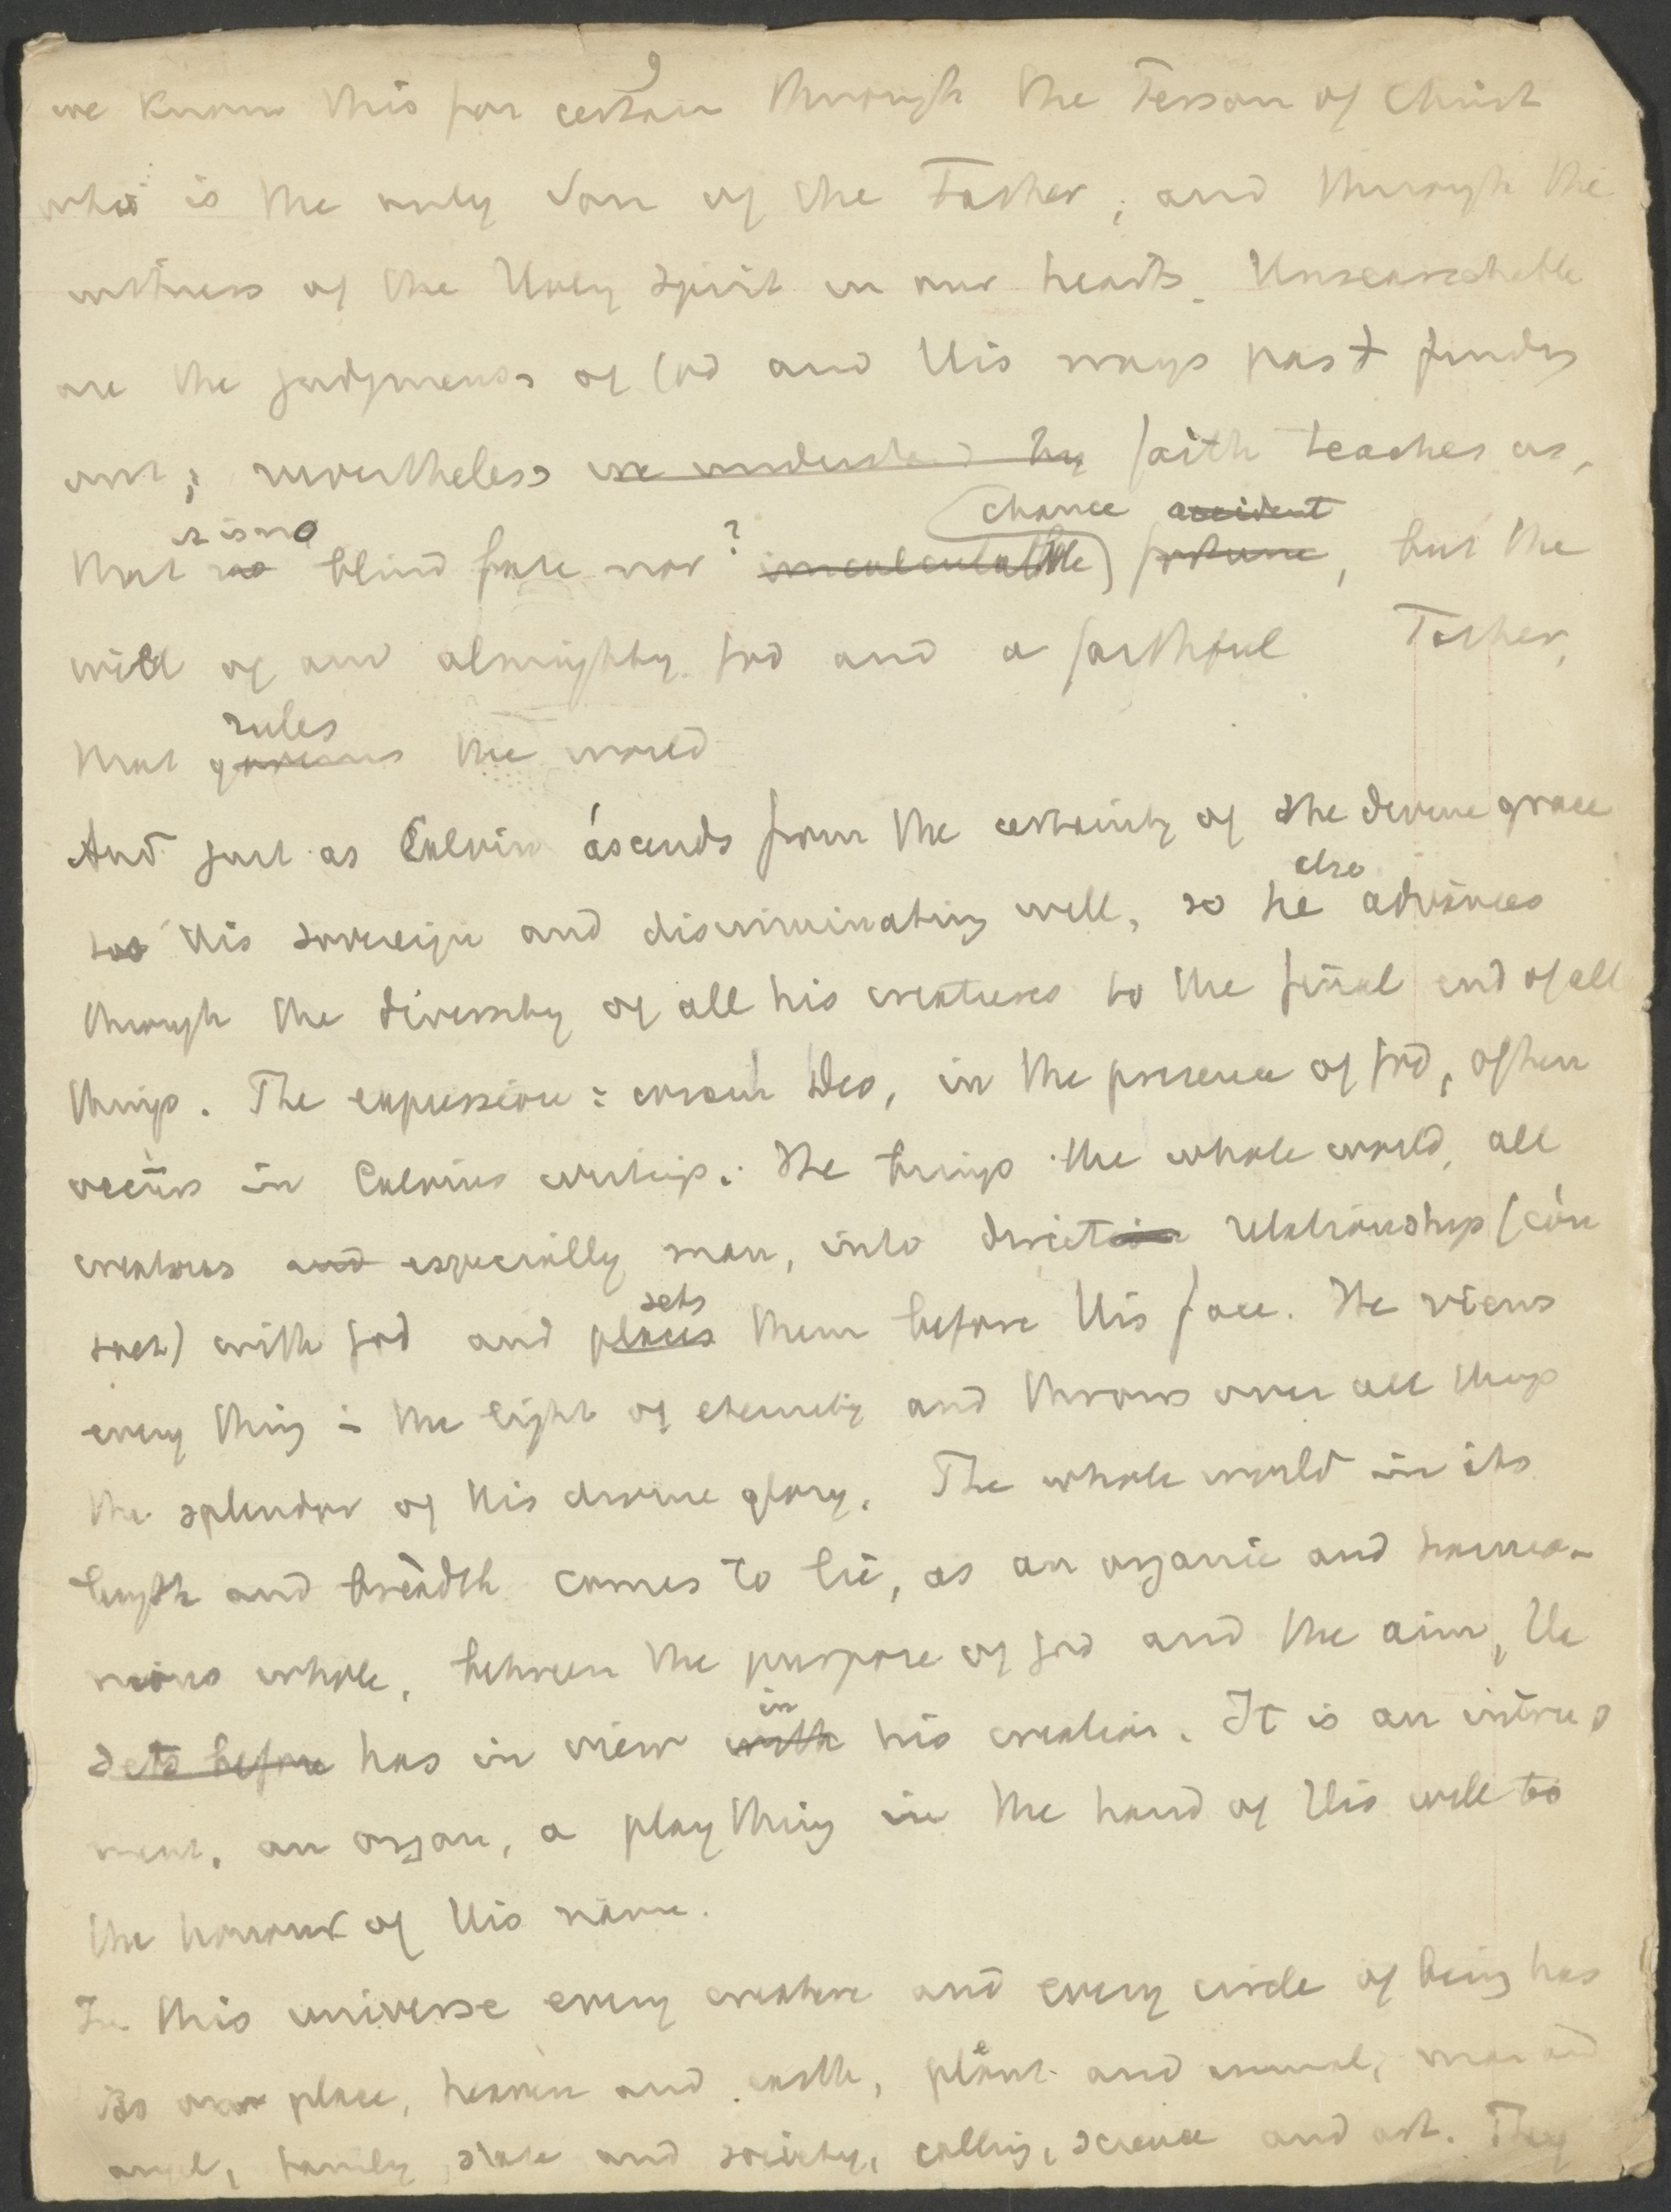 9
we know this for certain through the Person of Christ
who is the only Son of the Father, and through the
witness of the Holy Spirit in our hearts. Unsearchable
are the judgments of God and His ways past finding
out; nevertheless we understand by faith teaches us,
it is no chance accident
that no blind fate nor ? incalculable fortune, but the
will of an almighty God and a faithful Father,
rules
that governs the world
And just as Calvin ascends from the certainty of the divine grace
also
to His sovereign and discriminating will, so he advances
through the diversity of all his creatures to the final end of all
things. The expression: coram Deo, in the presence of God, often
occurs in Calvins writings. He brings the whole world, all
creatures and especially man, into direct relationship (con
sets
tact) with God and places them before His face. He views
every thing in the light of eternity and throws over all things
the splendor of His divine glory. The whole world in its
length and breadth comes to lie, as an organic and harmo-
nious whole, between the purpose of God and the aim, He
in
sets before has in view with his creation. It is an instru
ment, an organ, a play thing in the hand of His will to
the honour of His name.
In this universe every creature and every circle of being has
its own place, heaven and earth, plant and animal, man and
angel, family, state and society, calling, science and art. They